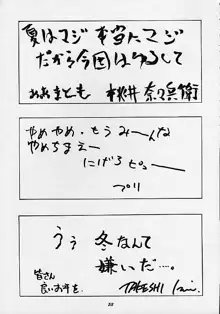 夏はマジ本当にマジ
だから今回はゆるして
おおまとも 桃井奈々兵衛
やめやめ・もうみーんな
やめちまえー
にげろピュー
プリ
うう冬なんて
嫌いだ…。
皆さん
良いお年を.
TAKESHI